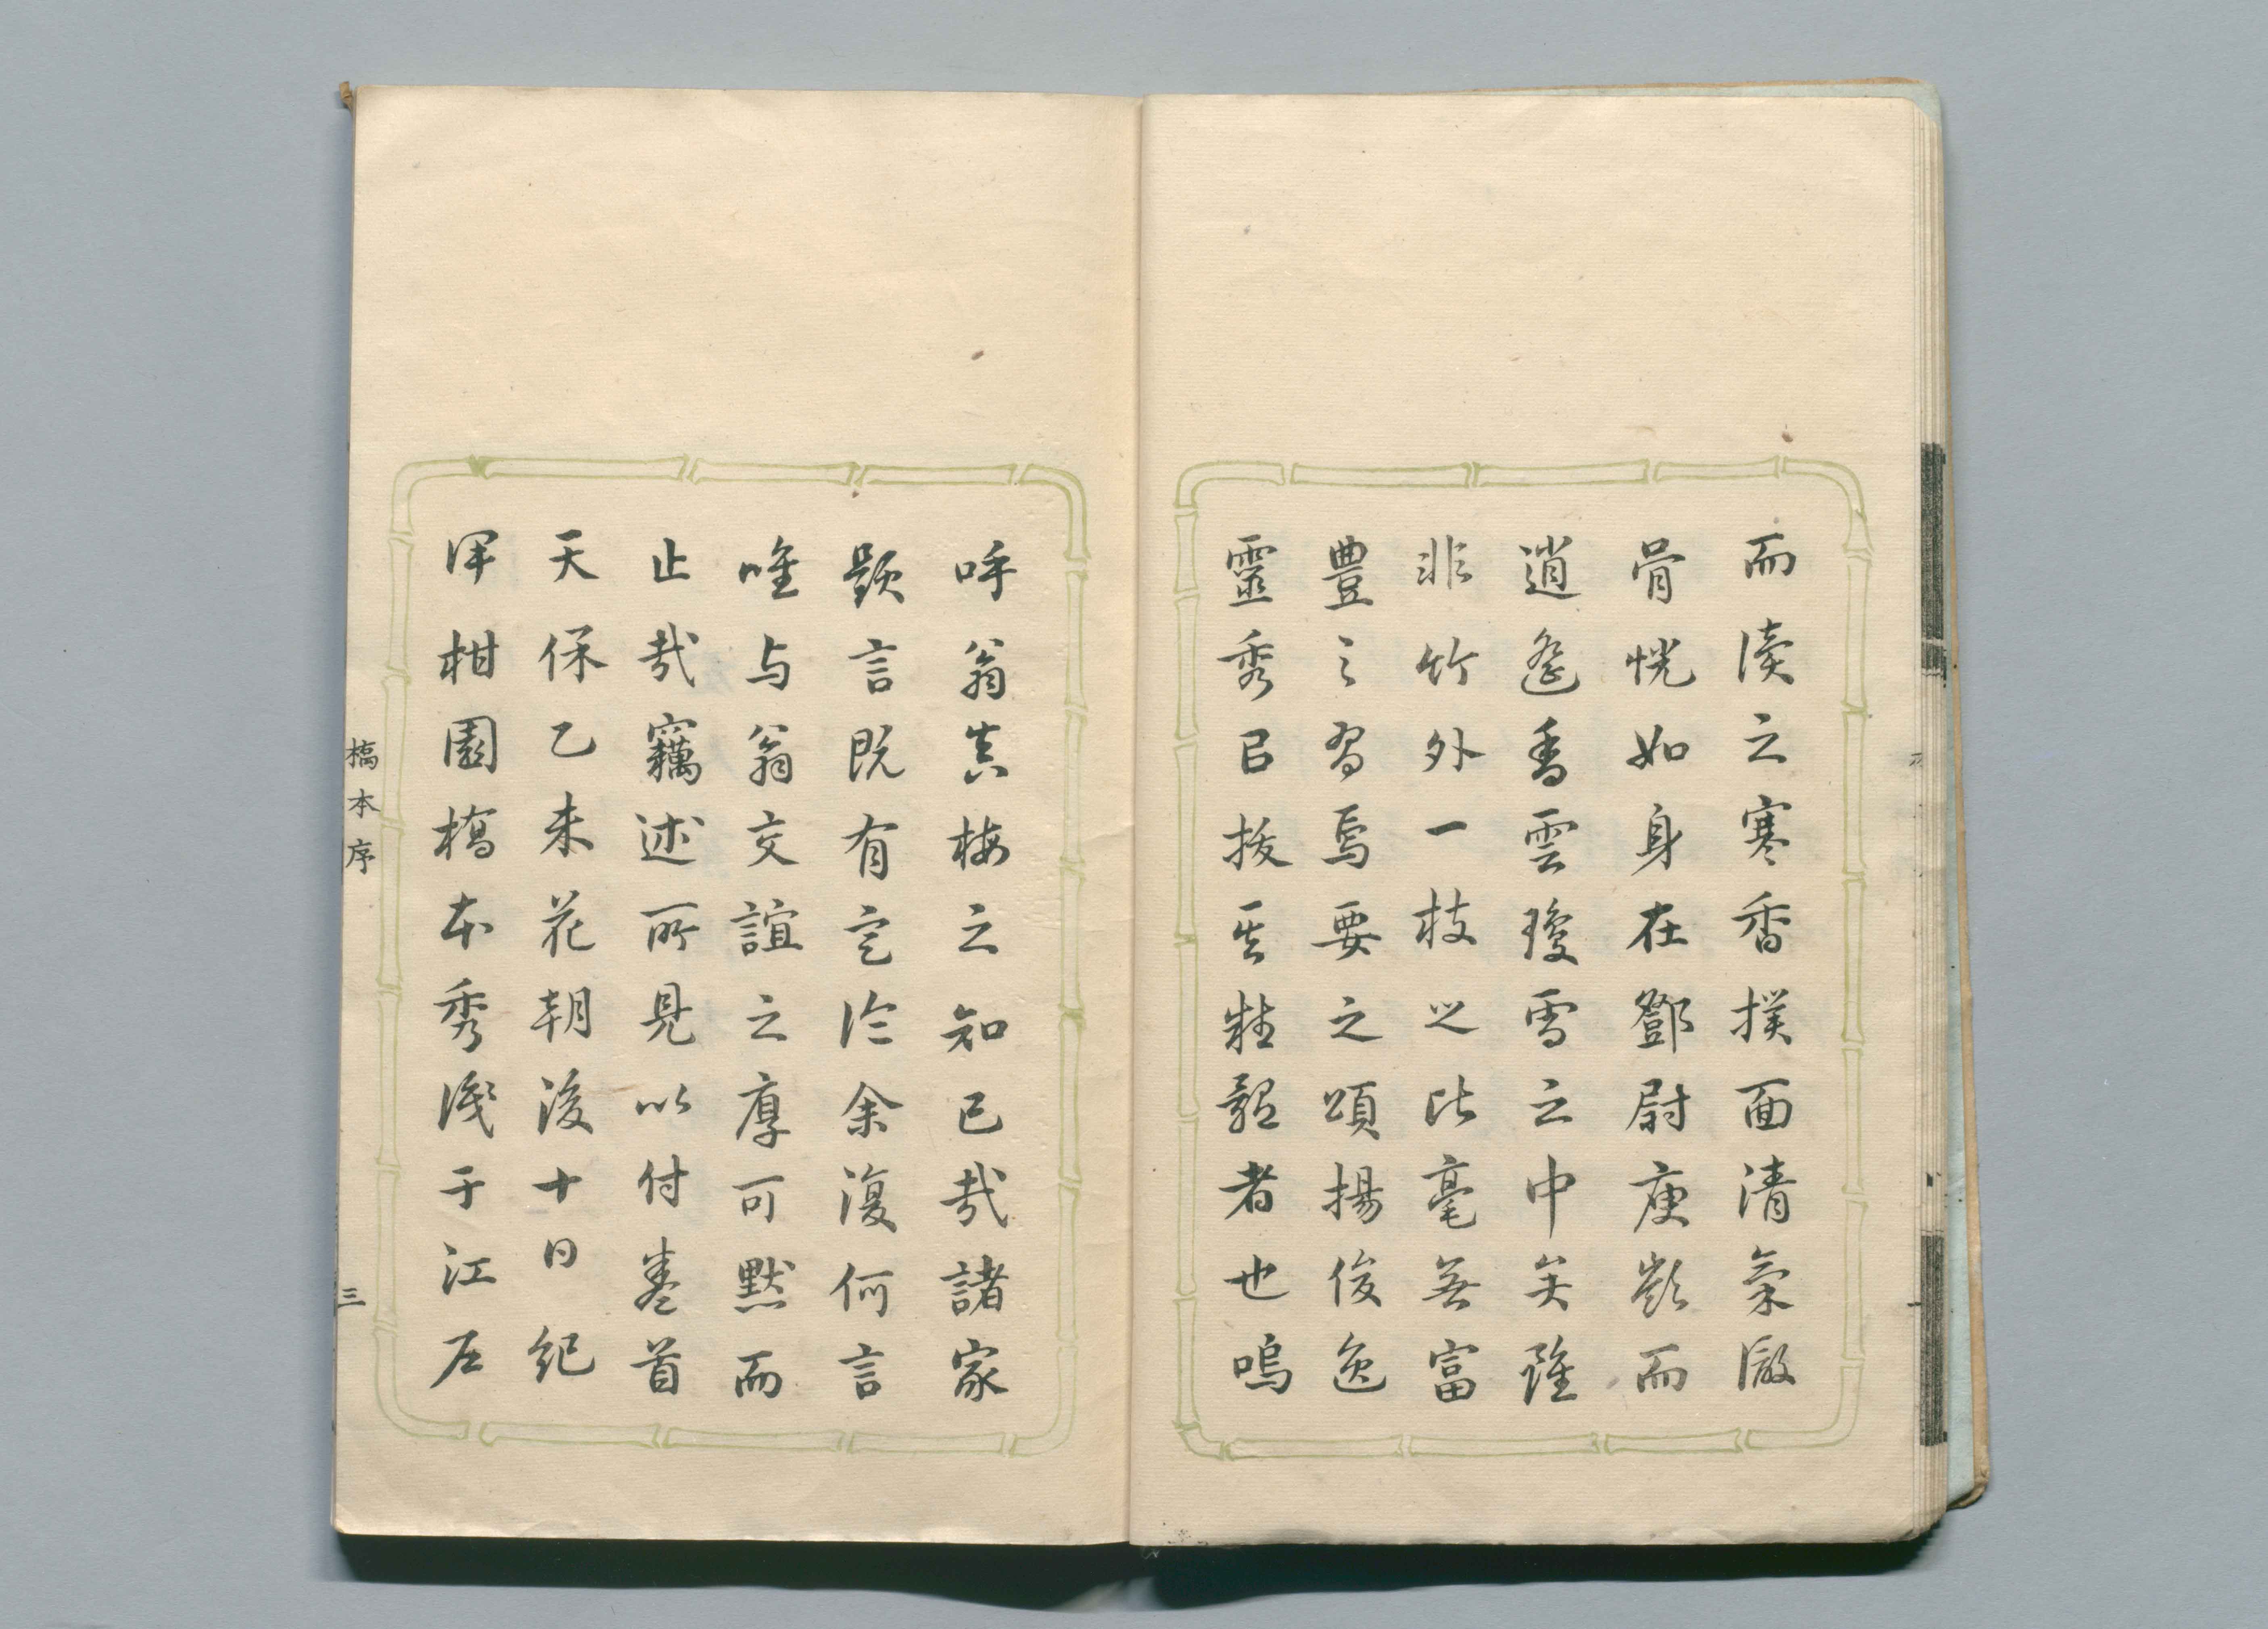 而讀之寒香撲面清氣徹
骨恍如身在鄧尉庾嶺而
逍遙香雲瓊雪之中矣雖
非竹外一枝之比毫無富
豊之習焉要之頌揚俊逸
靈秀㠯拔其 者也嗚
呼翁真梅之知己哉諸家
題言既有定論余復何言
唯与翁交誼之厚可默而
止哉竊述所見以付卷首
天保乙未花朝後十日紀
伊柑園橋本秀識于江左
橋本序
三